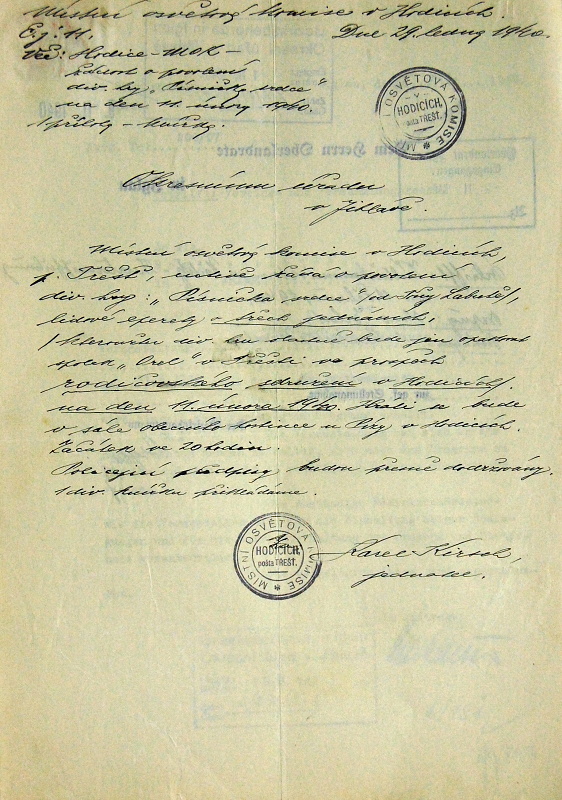 Místní osvětová komise v Hodicích.
Č.j. 11. Dne 29. ledna 1940.
Věc: Hodice - MOK -
žádost o povolení
div. hry „Písnička srdce"
na den 11. února 1940.
1 příloha - knížka
MÍSTNÍ OSVĚTOVÁ KOMISE
V
HODICÍCH,
pošta TŘEŠŤ.
Okresnímu úřadu
v Jihlavě.
Místní osvětová komise v Hodicích,
p. Třešť, uctivě žádá o povolení
div. hry: „Písnička srdce" /od Tony
lidové operety o třech jednáních,
/ kteroužto div. hru bude jen opakovat
spolek „Orel" v Třešti ve prospěch
rodičovského sdružení v Hodicích/
na den 11. února 1940. Hráti se bude
v sále obecního hostince u v Hodicích.
Začátek ve 20 hodin.
Policejní předpisy budou přesně dodržovány.
1 div. knížku přikládáme.
MÍSTNÍ OSVĚTOVÁ KOMISE
V
HODICÍCH,
pošta TŘEŠŤ.
Karel
jednatel.